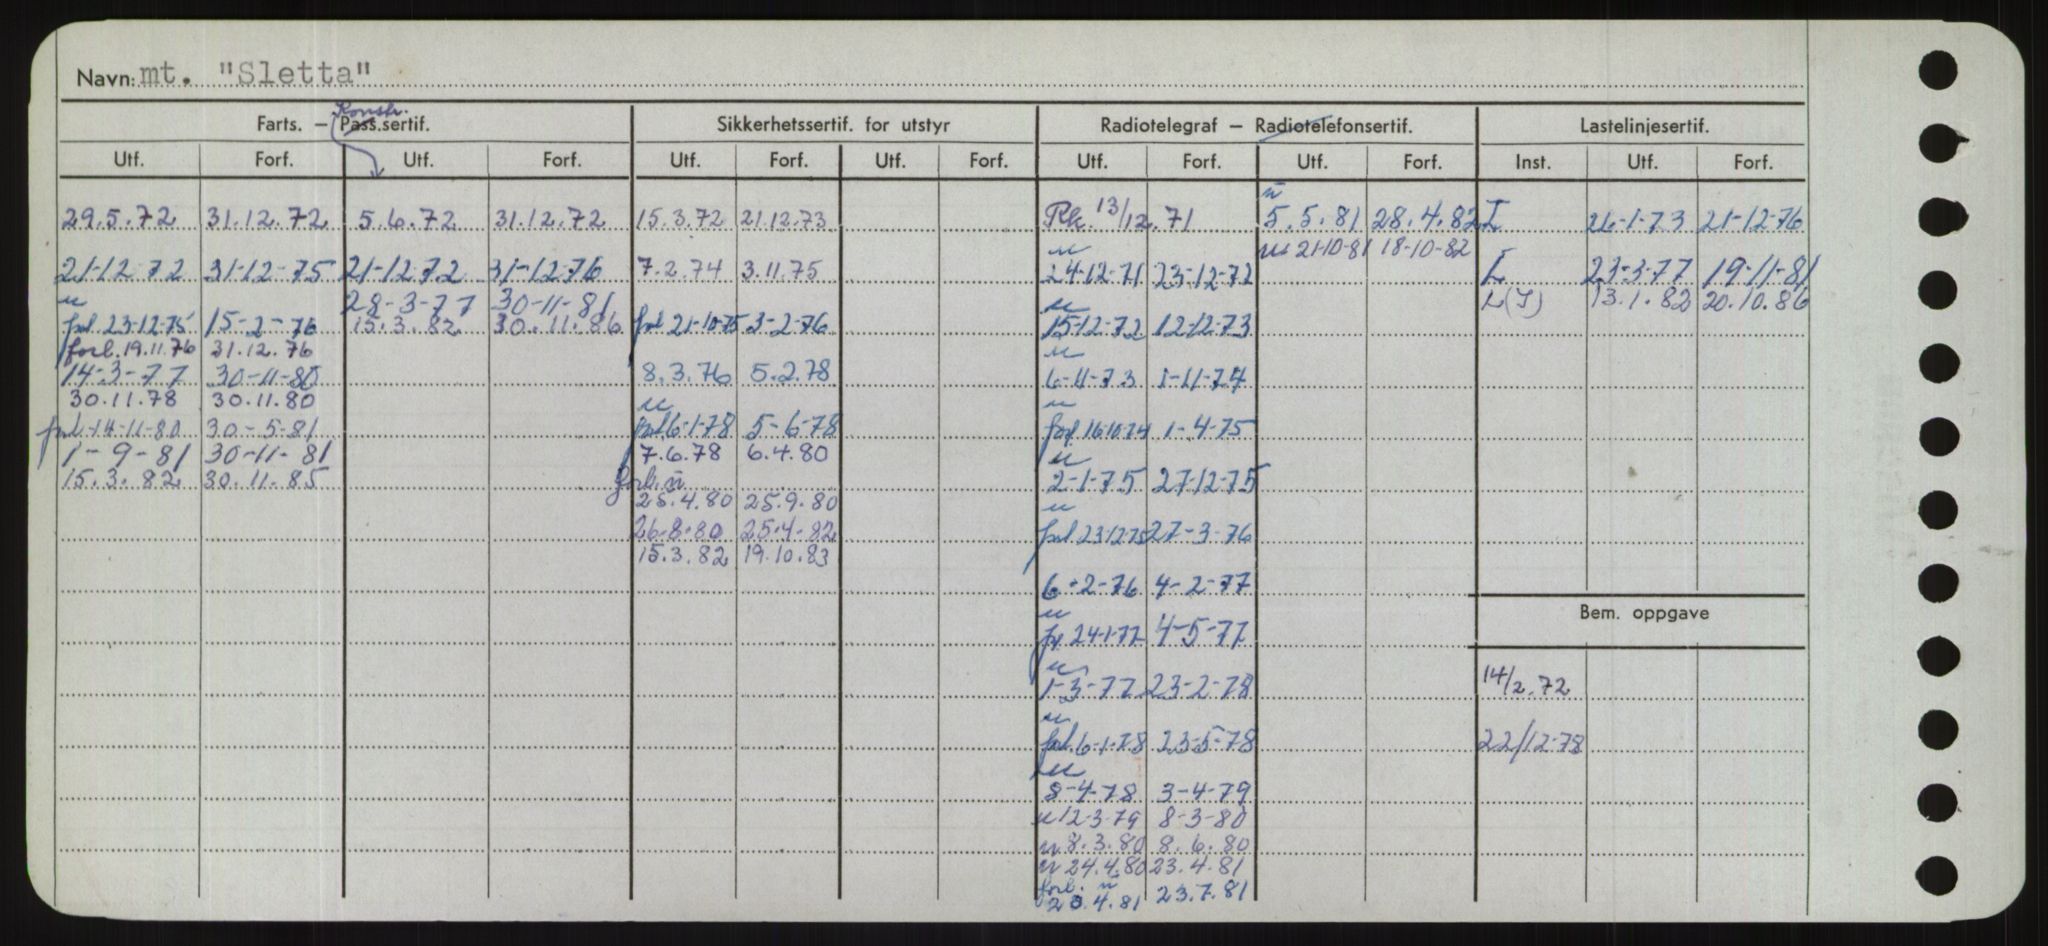 Navn: mt. "Sletta"
Konstr.
Farts. — Pass.sertif. Sikkerhetssertif. for utstyr Radiotelegraf — Radiotelefonsertif. Lastelinjesertif.
Utf. Forf. Utf. Forf. Utf. Forf. Utf. Forf. Utf. Forf. Utf. Forf. Inst. Utf. Forf.
29.5.72 31.12.72 5.6.72 31.12.72
21-12-72 31-12-75 21-12-72 31-12-76
u 28-3-77 30-11-81
forl 23-12-75 15-2-76 15.3.82 30.11.86
forl. 19.11.76 31.12.76
14-3-77 30-11-80
30.11.78 30.11.80
forl 14-11-80 30-5-81
1-9-81 30-11-81
15.3.82 30.11.85
15.3.72 21.12.73
7.2.74 3.11.75
forl 21-10-75 3-2-76
8.3.76 5.2.78
u
forl 6-1-78 5-6-78
7.6.78 6.4.80
forl. u
25.4.80 25.9.80
26.8.80 25.4.82
15.3.82 19.10.83
Rk. 13/12.71
u
24-12-71 23-12-72
u
15-12-72 12-12-73
u
6-11-73 1-11-74
u
forl 16-10-74 1-4-75
u
2-1-75 27-12-75
u
forl 23-12-75 27-3-76
6-2-76 4-2-77
u
24-1-77 4-5-77
u
1-3-77 23-2-78
u
forl. 6-1-78 23-5-78
u
8-4-78 3-4-79
u 12-3-79 8-3-80
u 8.3.80 8.6.80
u 24.4.80 23.4.81
forl. u
20.4.81 23.7.81
u
5.5.81 28.4.82
u 21-10-81 18-10-82
L 26-1-73 21-12-76
L 23-3-77 19-11-81
L(I) 13.1.82 20.10.86
Bem. oppgave
14/2.72
22/12-78